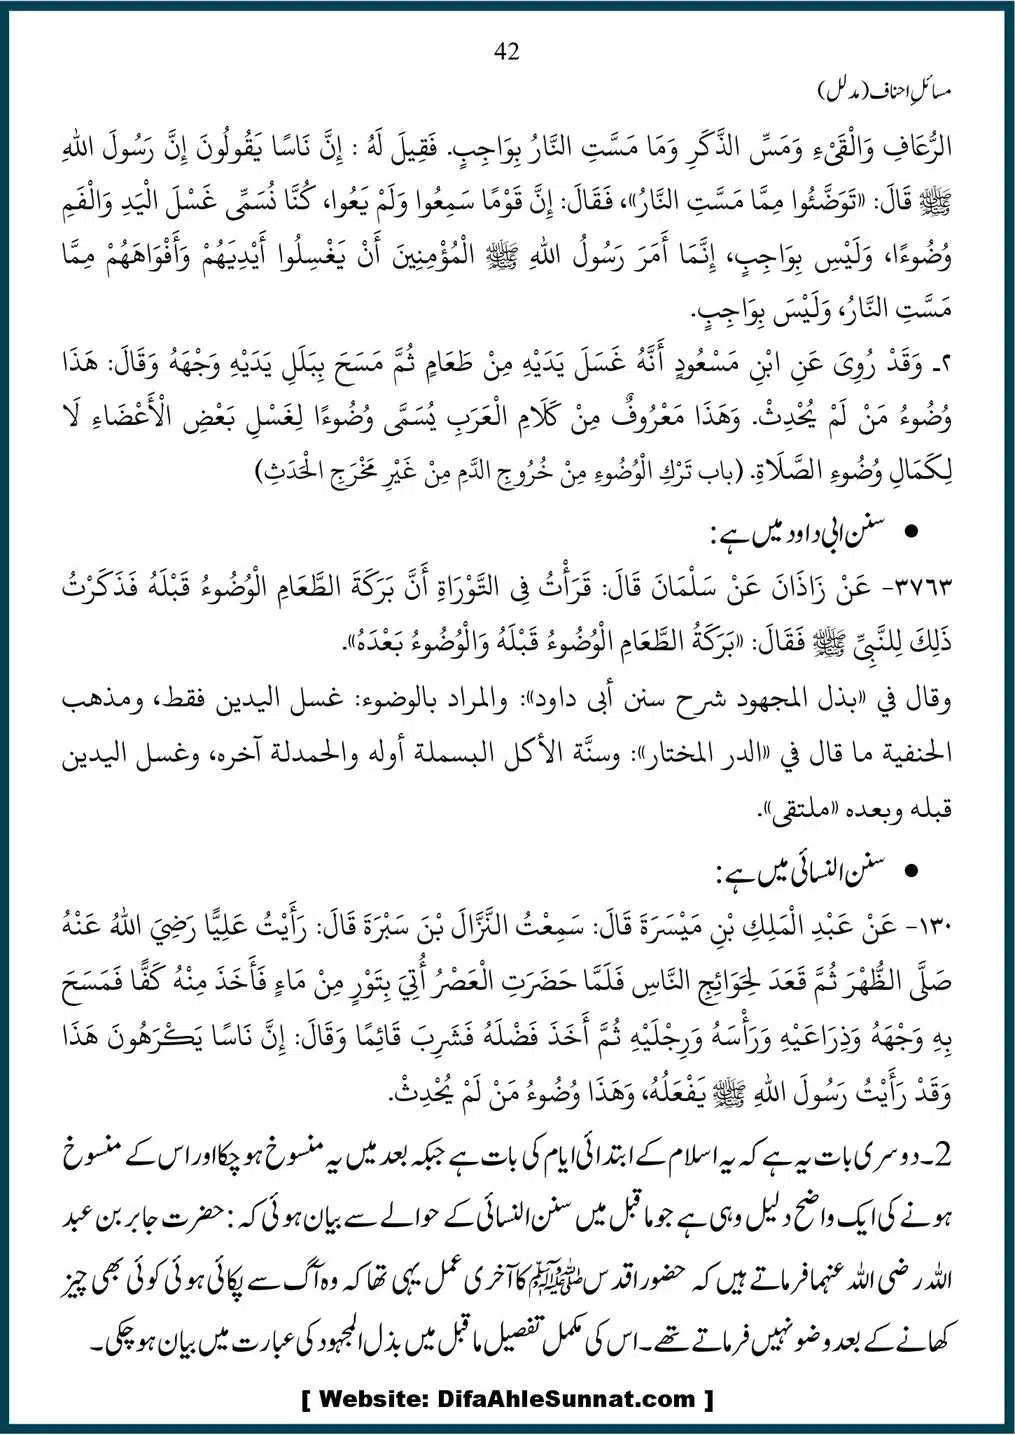 42
مسائلِ احناف (مدلل)
الرُّعَافِ وَالْقَيْءِ وَمَسِّ الذَّكَرِ وَمَا مَسَّتِ النَّارُ بِوَاجِبٍ. فَقِيلَ لَهُ : إِنَّ نَاسًا يَقُولُونَ إِنَّ رَسُولَ اللهِ
ﷺ قَالَ: «تَوَضَّئُوا مِمَّا مَسَّتِ النَّارُ»، فَقَالَ: إِنَّ قَوْمًا سَمِعُوا وَلَمْ يَعُوا، كُنَّا نُسَمِّى غَسْلَ الْيَدِ وَالْفَمِ
وُضُوءًا، وَلَيْسَ بِوَاجِبٍ، إِنَّمَا أَمَرَ رَسُولُ اللهِ ﷺ الْمُؤْمِنِينَ أَنْ يَغْسِلُوا أَيْدِيَهُمْ وَأَفْوَاهَهُمْ مِمَّا
مَسَّتِ النَّارُ، وَلَيْسَ بِوَاجِبٍ.
٢ـ وَقَدْ رُوِىَ عَنِ ابْنِ مَسْعُودٍ أَنَّهُ غَسَلَ يَدَيْهِ مِنْ طَعَامٍ ثُمَّ مَسَحَ بِبَلَلِ يَدَيْهِ وَجْهَهُ وَقَالَ: هَذَا
وُضُوءُ مَنْ لَمْ يُحْدِثْ. وَهَذَا مَعْرُوفٌ مِنْ كَلَامِ الْعَرَبِ يُسَمَّى وُضُوءًا لِغَسْلِ بَعْضِ الْأَعْضَاءِ لَا
لِكَمَالِ وُضُوءِ الصَّلَاةِ. (باب تَرْكِ الْوُضُوءِ مِنْ خُرُوجِ الدَّمِ مِنْ غَيْرِ مَخْرَجِ الْحَدَثِ)
● سنن ابی داود میں ہے:
٣٧٦٣- عَنْ زَاذَانَ عَنْ سَلْمَانَ قَالَ: قَرَأْتُ فِى التَّوْرَاةِ أَنَّ بَرَكَةَ الطَّعَامِ الْوُضُوءُ قَبْلَهُ فَذَكَرْتُ
ذَلِكَ لِلنَّبِيِّ ﷺ فَقَالَ: «بَرَكَةُ الطَّعَامِ الْوُضُوءُ قَبْلَهُ وَالْوُضُوءُ بَعْدَهُ».
وقال في «بذل المجهود شرح سنن أبى داود»: والمراد بالوضوء: غسل اليدين فقط، ومذهب
الحنفية ما قال في «الدر المختار»: وسنَّة الأكل البسملة أوله والحمدلة آخره، وغسل اليدين
قبله وبعده «ملتقى».
● سنن النسائی میں ہے:
١٣٠- عَنْ عَبْدِ الْمَلِكِ بْنِ مَيْسَرَةَ قَالَ: سَمِعْتُ النَّزَّالَ بْنَ سَبْرَةَ قَالَ: رَأَيْتُ عَلِيًّا رَضِيَ اللهُ عَنْهُ
صَلَّى الظُّهْرَ ثُمَّ قَعَدَ لِحَوَائِجِ النَّاسِ فَلَمَّا حَضَرَتِ الْعَصْرُ أُتِيَ بِتَوْرٍ مِنْ مَاءٍ فَأَخَذَ مِنْهُ كَفًّا فَمَسَحَ
بِهِ وَجْهَهُ وَذِرَاعَيْهِ وَرَأْسَهُ وَرِجْلَيْهِ ثُمَّ أَخَذَ فَضْلَهُ فَشَرِبَ قَائِمًا وَقَالَ: إِنَّ نَاسًا يَكْرَهُونَ هَذَا
وَقَدْ رَأَيْتُ رَسُولَ اللهِ ﷺ يَفْعَلُهُ، وَهَذَا وُضُوءُ مَنْ لَمْ يُحْدِثْ.
2۔ دوسری بات یہ ہے کہ یہ اسلام کے ابتدائی ایام کی بات ہے جبکہ بعد میں یہ منسوخ ہو چکا اور اس کے منسوخ
ہونے کی ایک واضح دلیل وہی ہے جو ما قبل میں سنن النسائی کے حوالے سے بیان ہوئی کہ: حضرت جابر بن عبد
اللہ رضی اللہ عنہما فرماتے ہیں کہ حضور اقدس ﷺ کا آخری عمل یہی تھا کہ وہ آگ سے پکائی ہوئی کوئی بھی چیز
کھانے کے بعد وضو نہیں فرماتے تھے۔ اس کی مکمل تفصیل ما قبل میں بذل المجہود کی عبارت میں بیان ہو چکی۔
[ Website: DifaAhleSunnat.com ]